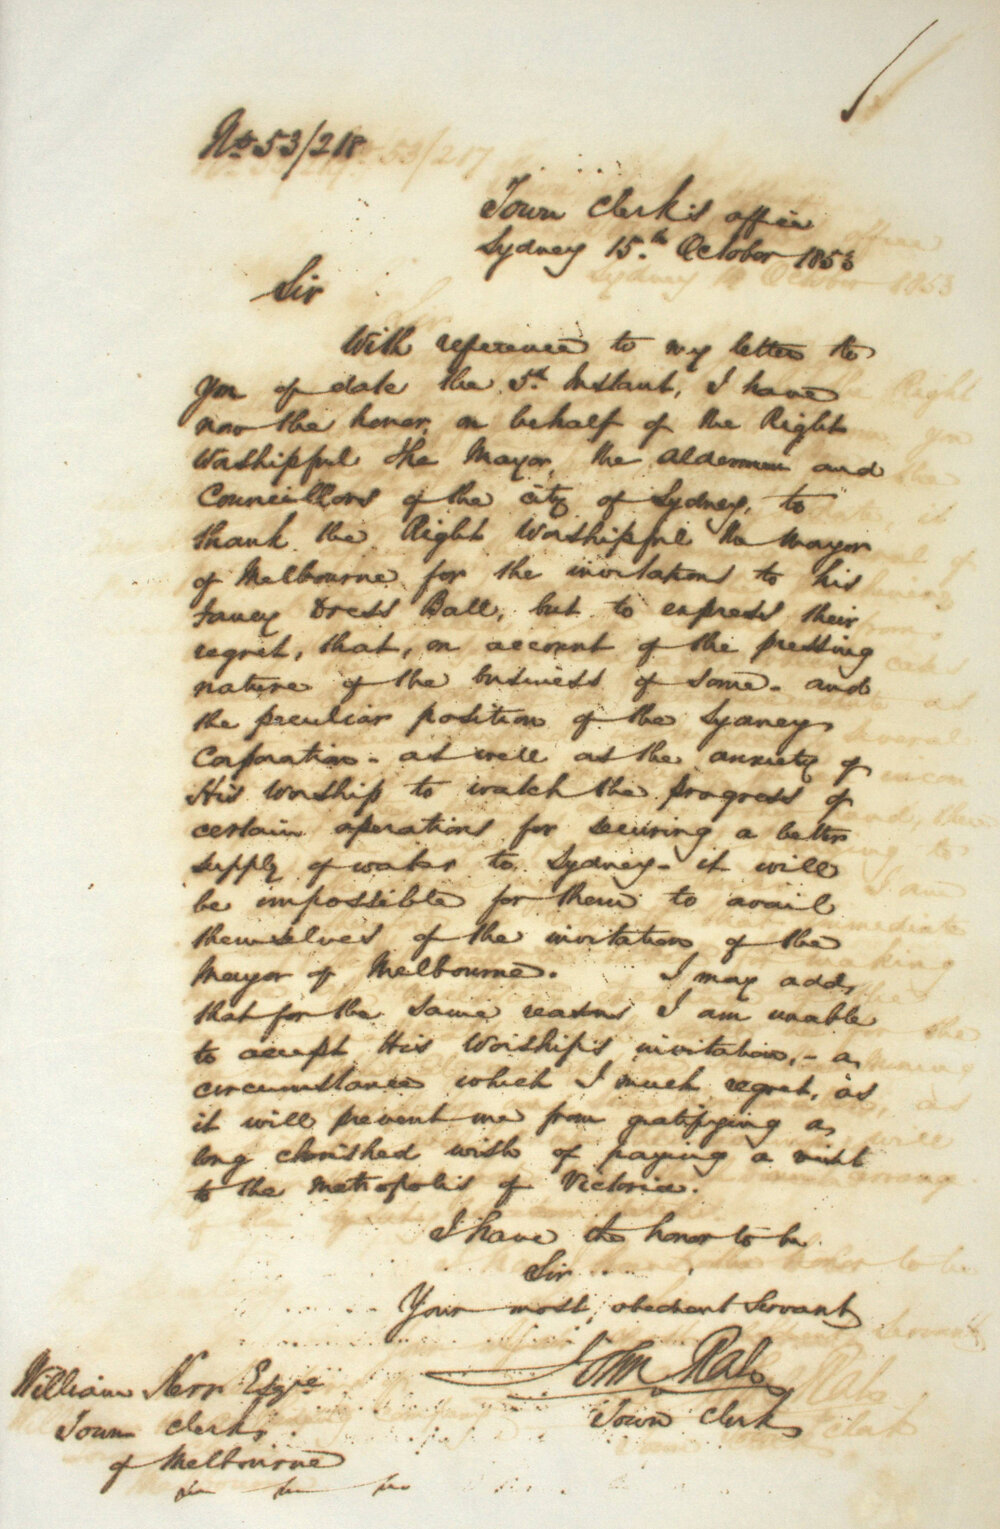 No 53/218
Town Clerk's office
Sydney 15th October 1853
Sir
With reference to my letter to
you of date the 5th Instant, I have
now the honor, on behalf of the Right
Worshipful The Mayor, the Aldermen and
Councillors of the city of Sydney, to
thank the Right Worshipful the Mayor
of Melbourne for the invitations to his
Fancy Dress Ball, but to express their
regret, that, on account of the pressing
nature of the business of some - and
the peculiar position of the Sydney
Corporation - as well as the anxiety of
His Worship to watch the progress of
certain operations for securing a better
supply of water to Sydney - it will
be impossible for them to avail
themselves of the invitation of the
Mayor of Melbourne. I may add,
that for the same reasons I am unable
to accept His Worship's invitation, - a
circumstance which I much regret, as
it will prevent me from gratifying a
long cherished wish of paying a visit
to the Metropolis of Victoria.
I have the honor to be
Sir
Your most obedient Servant
John Rae
Town Clerk
William Kerr Esqre
Town Clerk
of Melbourne